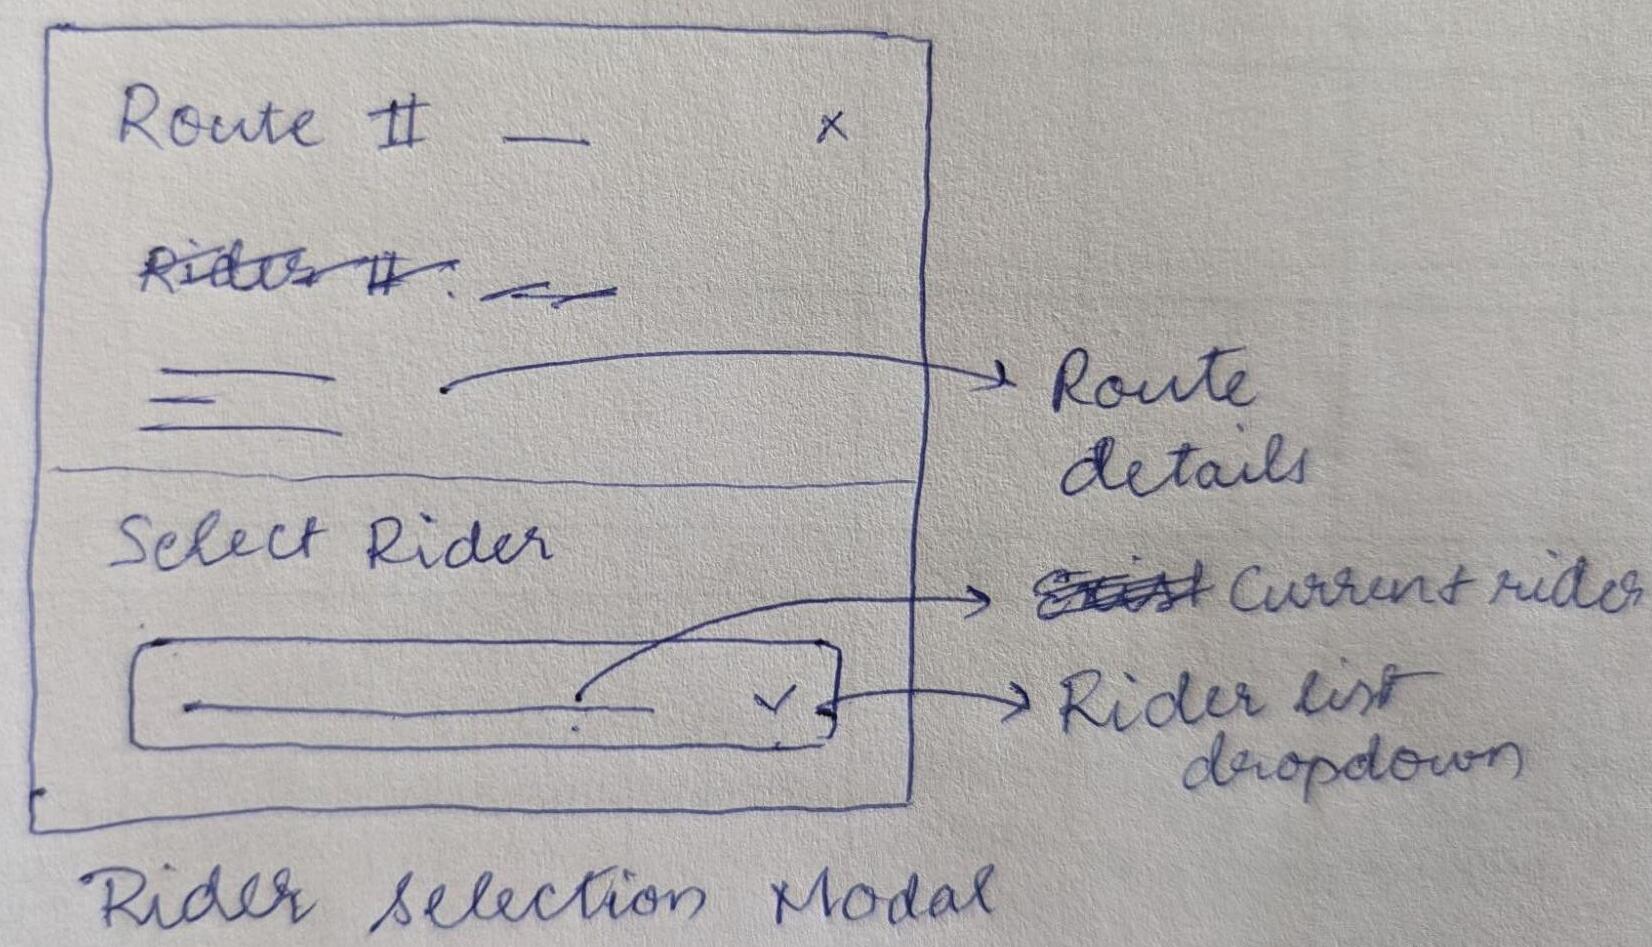 Route # __ x
Rider #: __
Route
details
Select Rider
Current rider
Rider list
dropdown
Rider Selection Modal